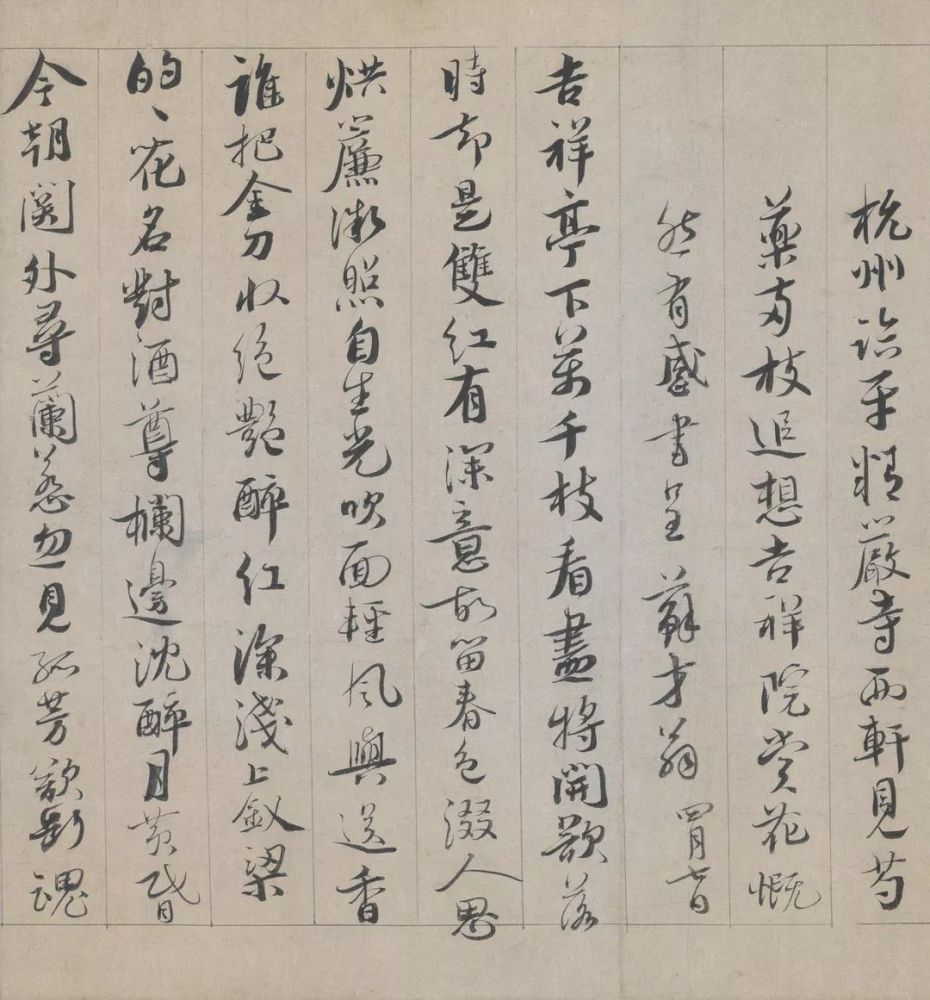 杭州臨平精嚴寺西軒見芍
藥兩枝追想吉祥院賞花慨
然有感書呈蘇才翁四月七日
吉祥亭下萬千枝看盡將開欲落
時却是雙紅有深意故留春色綴人思
烘簾微照自生光吹面輕風與送香
誰把金刀收絕艷醉紅深淺上釵梁
的的花名對酒尊欄邊沈醉月黃昏
今朝關外尋蘭蕙忽見孤芳欲斷魂